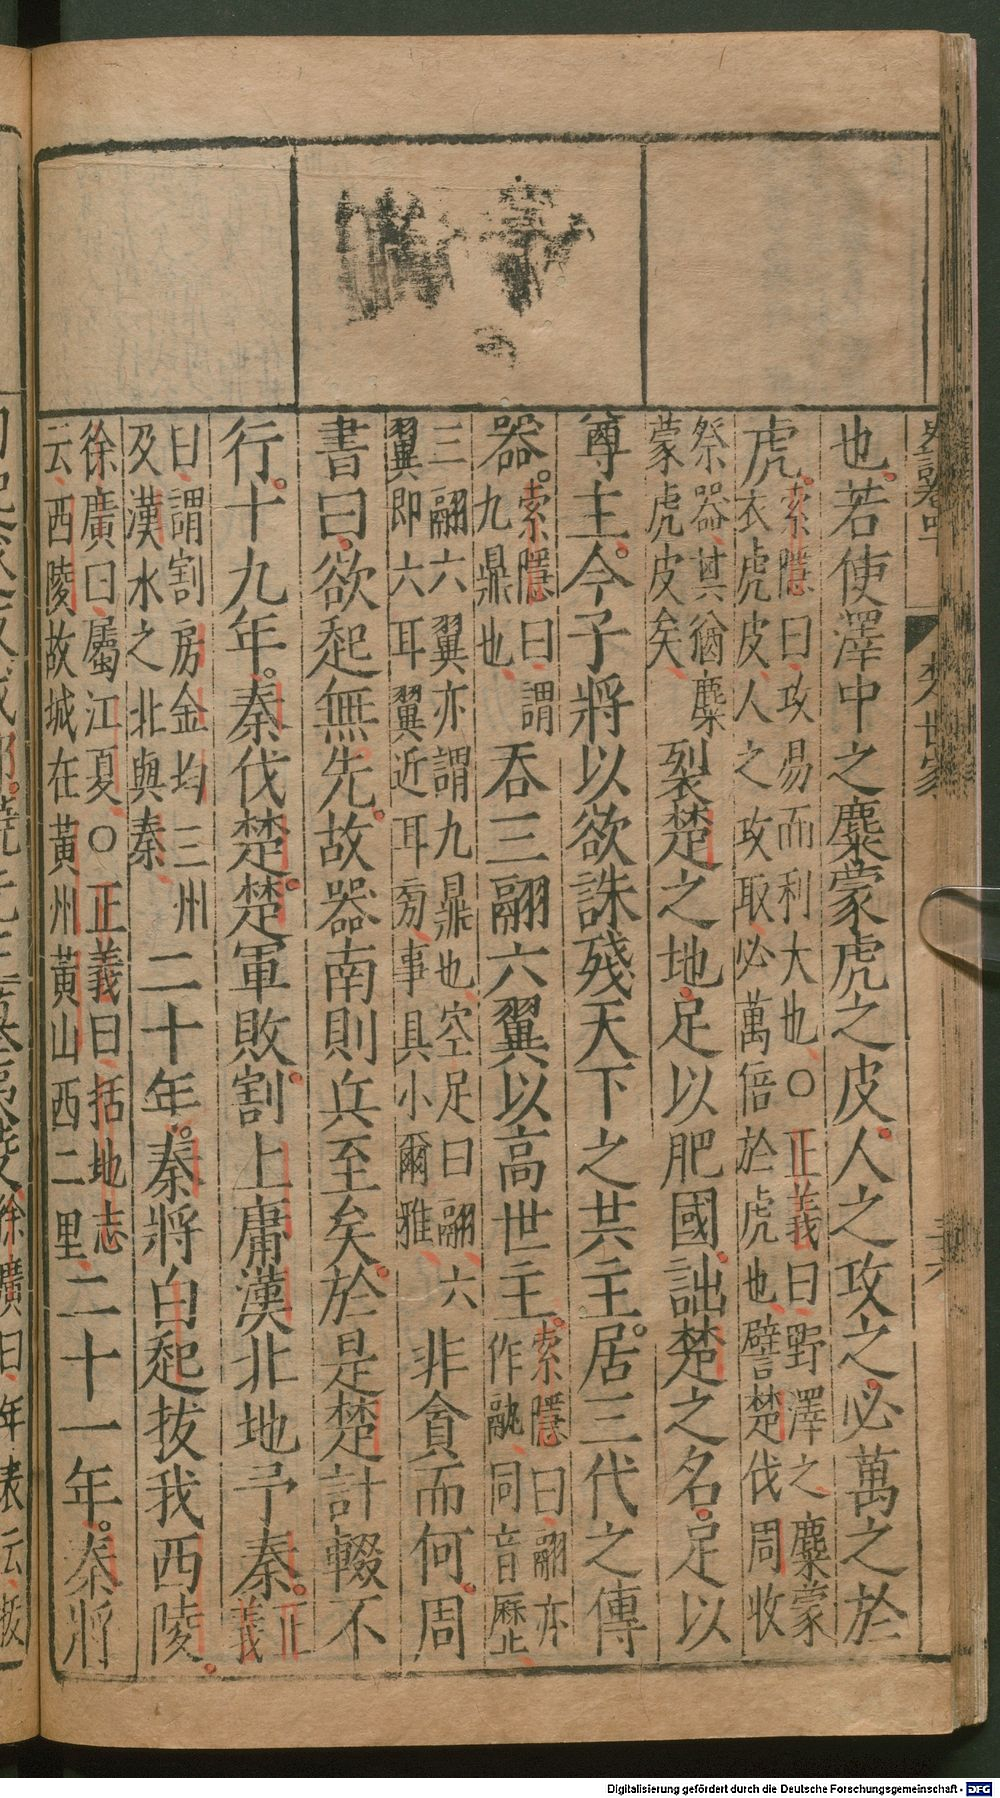 史記卷四十 楚世家
也若使澤中之麋蒙虎之皮人之攻之必萬之於
虎索隱曰攻易而利大也○正義曰野澤之麋蒙
衣虎皮人之攻取必萬倍於虎也譬楚伐周收
祭器其猶麋
蒙虎皮矣
裂楚之地足以肥國詘楚之名足以
尊主今子將以欲誅殘天下之共主居三代之傳
器索隱曰謂
九鼎也
吞三翮六翼以高世主索隱曰翮亦
作䰛同音歷
三翮六翼亦謂九鼎也空足曰翮六
翼即六耳翼近耳旁事具小爾雅
非貪而何周
書曰欲起無先故器南則兵至矣於是楚計輟不
行十九年秦伐楚楚軍敗割上庸漢北地予秦正
義
曰謂割房金均三州
及漢水之北與秦
二十年秦將白起拔我西陵
徐廣曰屬江夏○正義曰括地志
云西陵故城在黃州黃山西二里
二十一年秦將
徐廣曰年表云拔
Digitalisierung gefördert durch die Deutsche Forschungsgemeinschaft - DFG